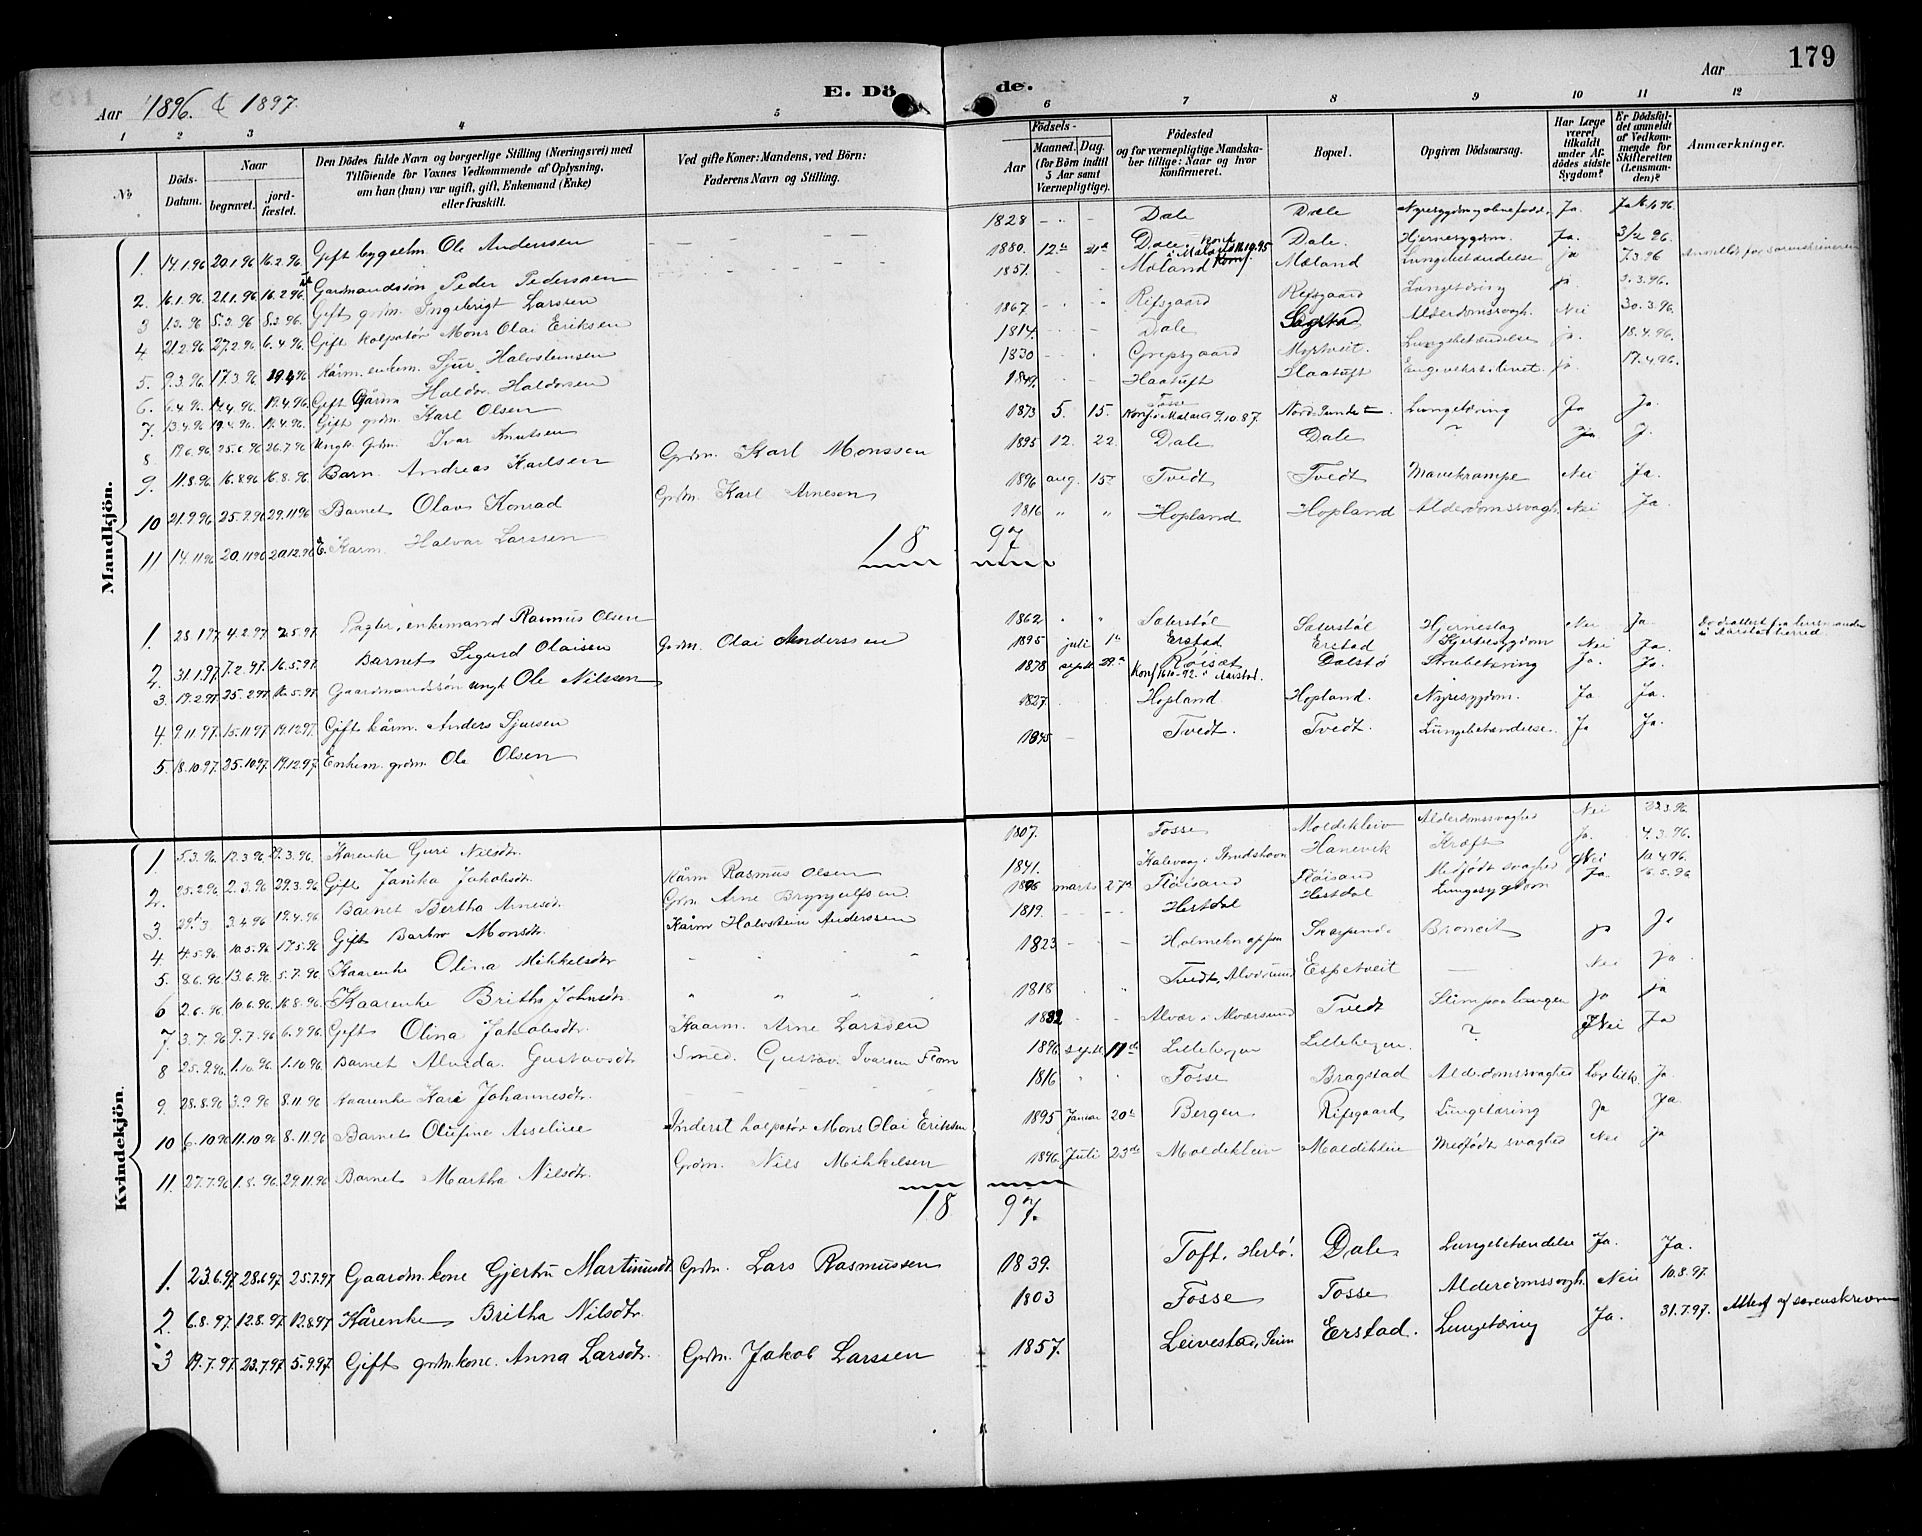 179
Aar 1896. & 1897.
E. Döde.
Aar
1 2 3 4 5 6 7 8 9 10 11 12
No
Döds-Datum.
Naar
begravet.
jord-fæstet.
Den Dödes fulde Navn og borgerlige Stilling (Næringsvei) med
Tilföiende for Voxnes Vedkommende af Oplysning,
om han (hun) var ugift, gift, Enkemand (Enke)
eller fraskilt.
Ved gifte Koner: Mandens, ved Börn:
Faderens Navn og Stilling.
Födsels-
Aar
Maaned. Dag.
(for Börn indtil
5 Aar samt
Værnepligtige).
Födested
og for værnepligtige Mandska-
ber tillige: Naar og hvor
konfirmeret.
Bopæl.
Opgiven Dödsaarsag.
Har Læge
været
tilkaldt
under Af-
dødes sidste
Sygdom?
Er Dödsfal-
det anmeldt
af Vedkom-
mende for
Skifteretten
(Lensman-
den)?
Anmærkninger.
Mandkjön.
1. 14.1.96 20.1.96 16.2.96 Gift bygselm Ole Anderssen 1828 Dale Dale Ja.
2. 16.1.96 21.1.96 16.2.96 Gardmandssön Peder Pederssen 1880. 12te 21de Dale. Konf i Mæland 10.95 Dale. Hjernesygdom. Ja. 3/2 96.
3 1.3.96 5.3.96 8.3.96 Gift grdm. Ingebrigt Larssen 1851. Mæland Mæland Lungebetændelse ja 7.3.96
4. 21.2.96 27.2.96 6.4.96 Gift kolportör Mons Olai Eriksen 1867 Rifsgaard Rifsgaard Lungetæring ja 3.3.96.
5. 9.3.96 17.3.96 19.4.96 Kårm. enkem. Sjur Halvsteinsen 1814. Dale Sagstad Alderdomssvagh. Nei 30.3.96
6. 6.4.96 14.4.96 19.4.96 Gift Gårm Haldor Haldorsen 1830 Grepsgaard Myrtveit. Lungebetændelse ja. 18.4.96.
7. 13.4.96 19.4.96 19.4.96 Gift grdm. Karl Olsen 1849. Haatuft Haatuft ja 17.4.96.
8. 19.6.96 25.6.96 26.7.96 Ungk. Grdm. Ivar Knutsen 1873 5. 15. Fosse Konf. i Mæland 9.10.87. Nord. Lungetæring Ja Ja.
9. 11.8.96 16.8.96 16.8.96 Barn. Andreas Karlsen Grdm. Karl Monssen 1895 12. 22. Dale Dale ? Ja J.
10 21.9.96 25.9.96 29.11.96 Barnet Olav Konrad Grdm. Karl Arnesen 1896 aug. 15 Tvedt Tvedt Mavekrampe Nei Ja.
11 14.11.96 20.11.96 20.12.96 E. Kårm. Halvar Larssen 1816 " " Hopland Hopland Alderdomssvagh Nei Ja.
18 97
1. 28.1.97 4.2.97 2.5.97 enkemand Rasmus Olsen 1862 " Sæterstöl Sæterstöl Hjerneslag Nei Ja.
2. 31.1.97 7.2.97. 16.5.97. Barnet Sigurd Olaisen Grdm. Olai Anderssen 1895 juli 1ste Erstad Erstad Hjertesygdom Nei Ja.
3. 19.2.97 25.2.97 16.5.97. Gaardmandssön ungk Ole Nilssen 1878 septb. 29de Röisæt Konf 16.10-92. i Aarstad. Dalstö Strubetæring Ja. Ja.
4. 9.11.97. 15.11.97 19.12.97. Gift kårm. Anders Sjursen 1827. Hopland Hopland. Nyresygdom. Ja Ja.
5. 18.10.97. 25.10.97 19.12.97. Enkem. grdm. Ole Olsen 1845 Tvedt. Tvedt. Lungebetændelse. Ja Ja.
Kvindekjön.
1. 5.3.96. 12.3.96 29.3.96. Kårenke Guri Nilsdtr. 1807. Fosse Moldekleiv Alderdomssvaghed Nei
2. 25.2.96 2.3.96 29.3.96 Gift Janika Jakobsdtr. Kårm Rasmus Olsen 1841. Hanevik Kræft Ja. 4.3.96.
3. 29de/3 3.4.96 19.4.96 Barnet Bertha Arnesdtr. Grdm. Arne Brynjulfsen 1896 marts 27de Flöisand Flöisand Medfödt svaghed Nei 10.4.96
4. 4.5.96. 10.5.96 17.5.96 Gift Barbro Monsdtr. Kårm Halvstein Anderssen 1819. Hestdal Hestdal Lungesygdom Ja. 16.5.96
5 8.6.96 13.6.96 5.7.96. Kaarenke Olina Mikkelsdtr 1823 Bronkit ja Ja
6 2.6.96 10.6.96 16.8.96. Kaarenke Britha Johnsdtr. " " " " 1818 Tvedt, Alversund Espetveit Nei ja
7. 3.7.96 9.7.96 6.9.96 Gift Olina Jakobsdtr. Kaarm. Arne Larssen 1832 Alver i Alversund Tvedt Slimpaalungen Ja ja
8 25.9.96 1.10.96 1.10.96. Barnet Alvida Gustavsdtr Smed. Gustav Ivarsen Flom 1896 septbr. 11de Lillebergen Lillebergen. ? Nei Ja
9. 28.8.96 3.9.96 8.11.96 Kaarenke Kari Johannesdtr. 1816 Fosse Bragstad Alderdomssvaghed Ja.
10 6.10.96 11.10.96 8.11.96 Barnet Olufine Asseline Inderst kolportör Mons Olai Eriksen 1895 Januar 20de Bergen Rifsgaard Lungetæring Ja Ja.
11. 27.7.96 1.8.96. 29.11.96 Barnet Martha Nilsdtr. Grdm. Nils Mikkelsen 1896. Juli 23de Moldekleiv Moldekleiv Medfödt svaghed Nei Ja
18 97.
1. 23.6.97. 28.6.97 25.7.97 Gaardm.kone Gjertru Martinusdtr. Grdm. Lars Rasmussen 1839. Toft. Herlö. Dale Lungebetændelse Ja. Ja.
2. 6.8.97. 12.8.97. 12.8.97 Kårenke Britha Nilsdtr. 1803 Fosse Fosse Alderdomssvagh. Nei 10.8.97.
3 19.7.97. 23.7.97. 5.9.97. Gift grdm.kone. Anna Larsdtr. Grdm. Jakob Larssen 1857. Leivestad, Seim Eerstad. Lungetæring Ja. 31.7.97. Attest af sorenskriveren